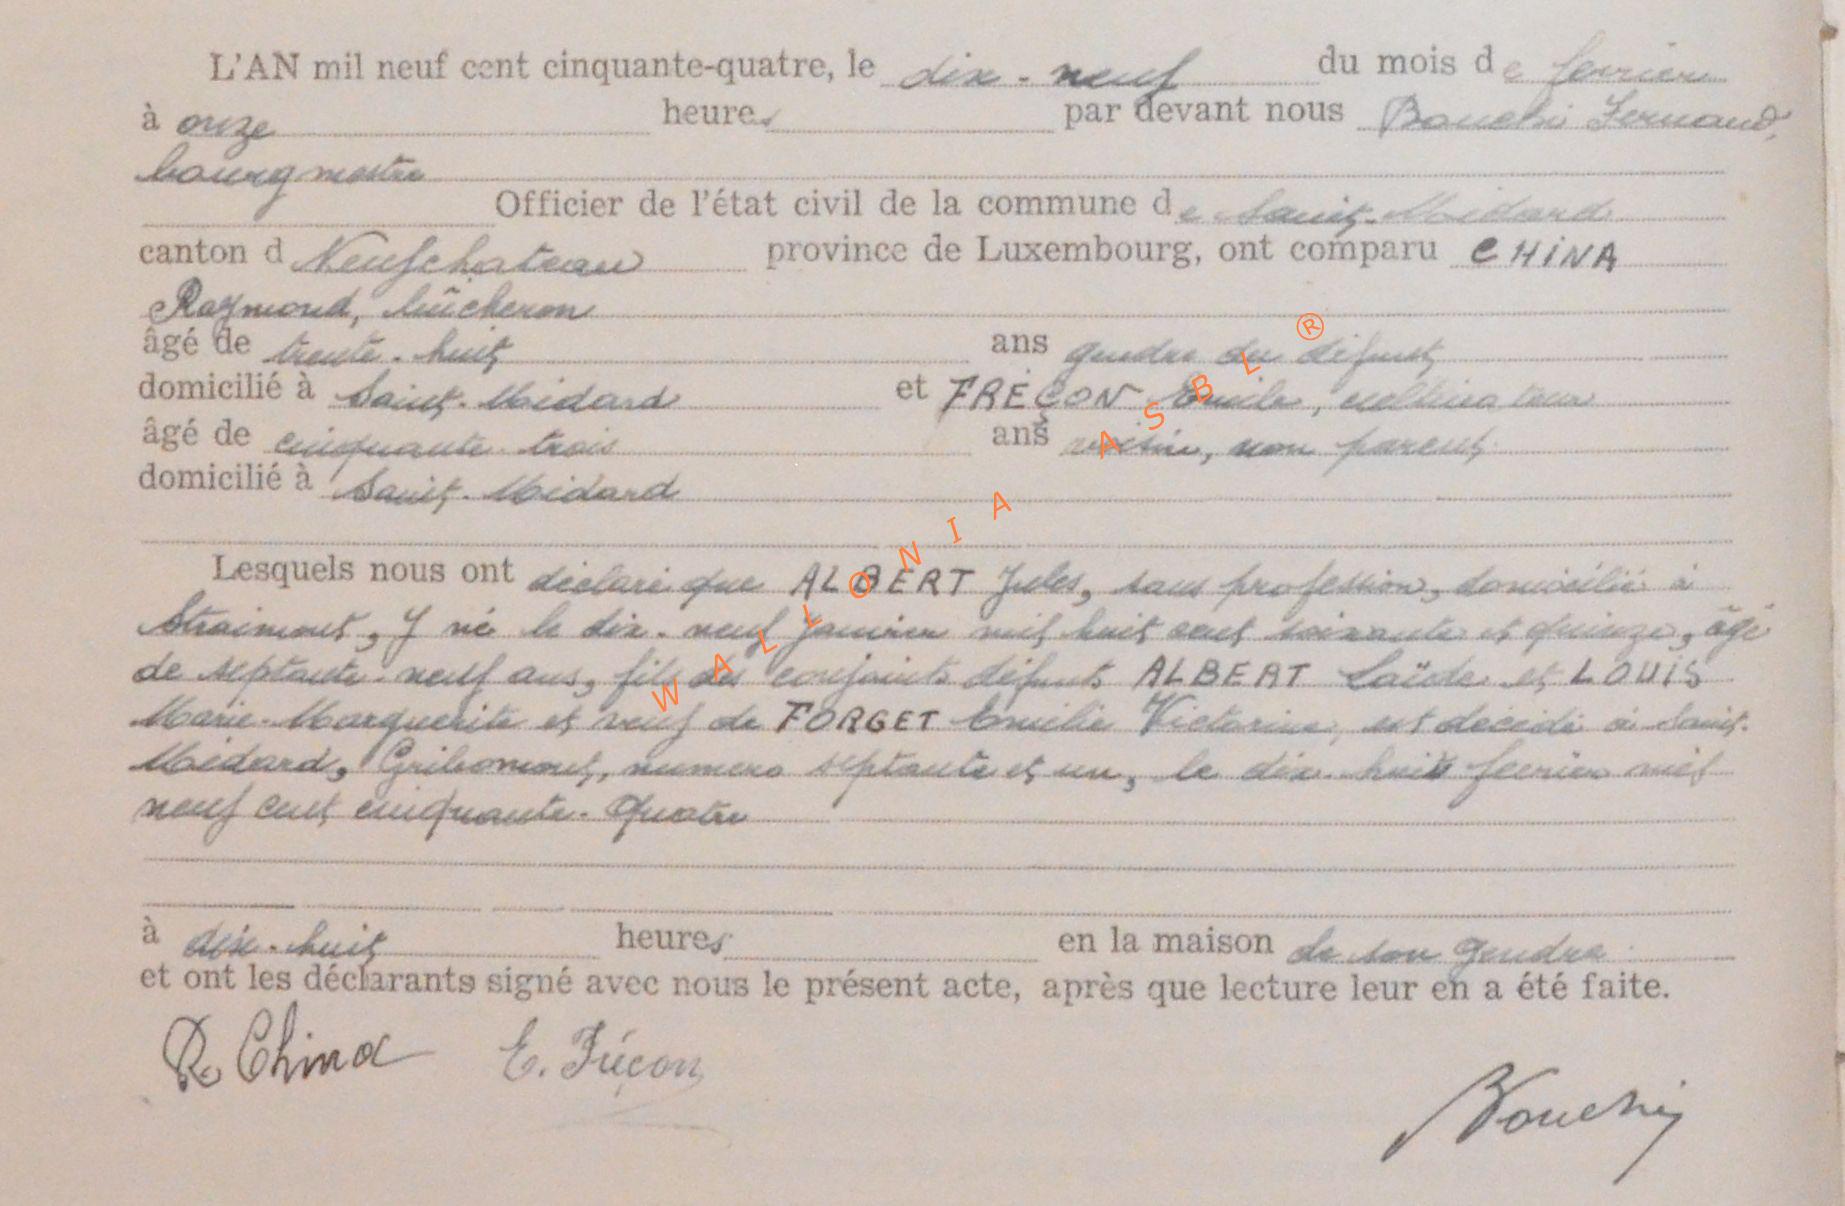 L'AN mil neuf cent cinquante-quatre, le dix-neuf du mois de fevrier
à onze heures par devant nous Bouchi Fernand,
bourgmestre
Officier de l'état civil de la commune de Saint-Médard
canton d Neufchateau province de Luxembourg, ont comparu CHINA
Raymond, bûcheron
âgé de trente-huit ans gendre du défunt
domicilié à Saint-Médard et FRÉÇON Emile, cultivateur
âgé de cinquante-trois ans voisin, non parent
domicilié à Saint-Médard
Lesquels nous ont déclaré que ALBERT Jules, sans profession, domicilié à
Straimont, y né le dix-neuf janvier mil huit cent soixante et quinze, âgé
de septante-neuf ans, fils des conjoints défunts ALBERT et LOUIS
Marie-Marguerite et veuf de FORGET Emilie Victorine, est décédé à Saint-
Médard, Gribomont, numero septante et un, le dix-huit fevrier mil
neuf cent cinquante-quatre
à dix-huit heures en la maison de son gendre
et ont les déclarants signé avec nous le présent acte, après que lecture leur en a été faite.
R. China E. Fréçon
Bouchi
WALLONIA ASBL ®